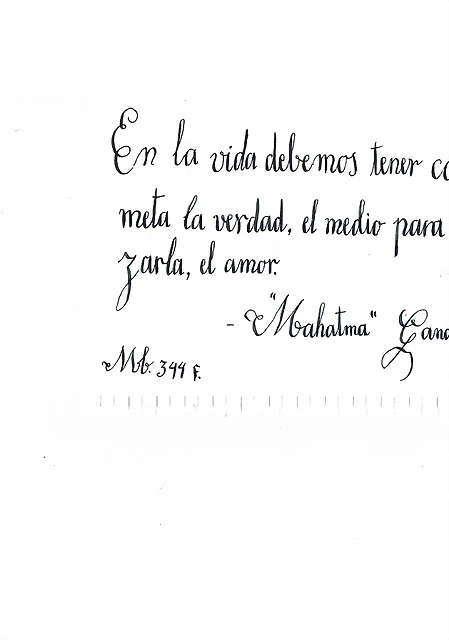 En la vida debemos tener co
meta la verdad, el medio para
zarla, el amor.
- "Mahatma" Gand
Mb. 344 f.